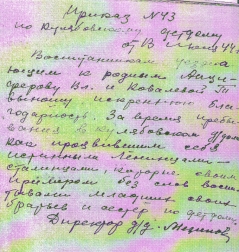 Приказ №43
по Кулябовскому детдому
от 13 Июля 44
Воспитанникам уезжа
ющим к родным
Вл. и Ковалевой
выношу искреннюю бла
годарность. За время пребы
вания в Кулябовском д/доме
как проявившим себя
истинными Ленинцами –
сталинцами, которые своим
примером без слов воспи
тывали младших своих
братьев и сестер по детдому
Директор д/д